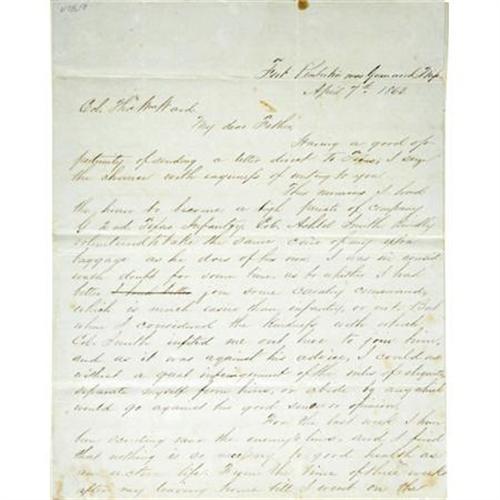 Fort Pemberton near Greenwood, Mip.
April 7th 1863
Col. Thos Wm Ward
My dear Father
Having a good op
portunity of sending a letter direct to Texas, I seize
the chance with eagerness of writing to you.
This morning I had
the honor to become a high private of company
2nd Texas Infantry. Col. Ashbel Smith kindly
volunteered to take the same care of my
baggage as he does of his own. I was in
doubt for some time as to whether I had
better join some cavalry command,
which is much easier than infantry, or not. But
when I considered the kindness with which
Col. Smith invited me out here to join him,
and as it was against his advise, I could
without a great infringement of the rules of
separate myself from him, or abide by any which
would go against his good sense or opinion.
For the last week I have
been scouting near the enemy's lines, and I find
that nothing is so necessary to good health as
an active life. From the time of
after my leaving home till I went on the